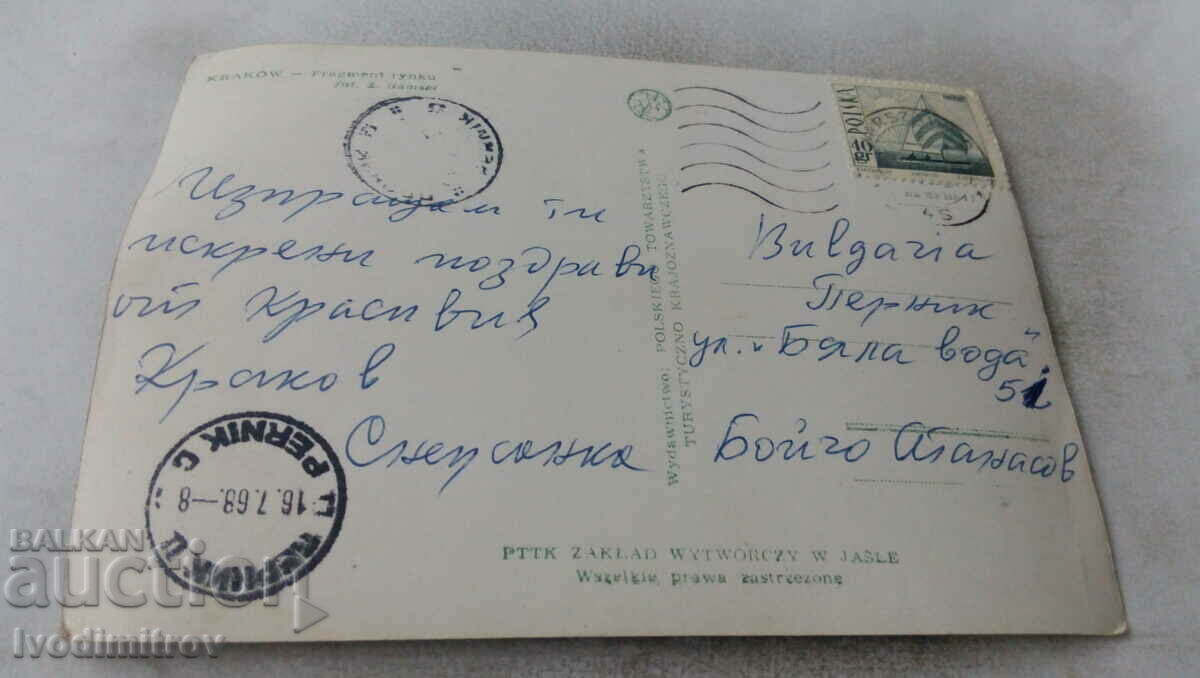 KRAKÓW — Fragment rynku
Изпращам ти
искрени поздрави
от Красивия
Краков
Снежанка
PERNIK
16.7.68.—8
Wydawnictwo: POLSKIEGO TOWARZYSTWA
TURYSTYCZNO KRAJOZNAWCZEGO
POLSKA
10 gr
45
Bulgaria
Перник
ул. „Бяла вода"
Бойчо Атанасов
PTTK ZAKŁAD WYTWÓRCZY W JAŚLE
Wszelkie prawa zastrzeżone
BALKAN
auction
Ivodimitrov